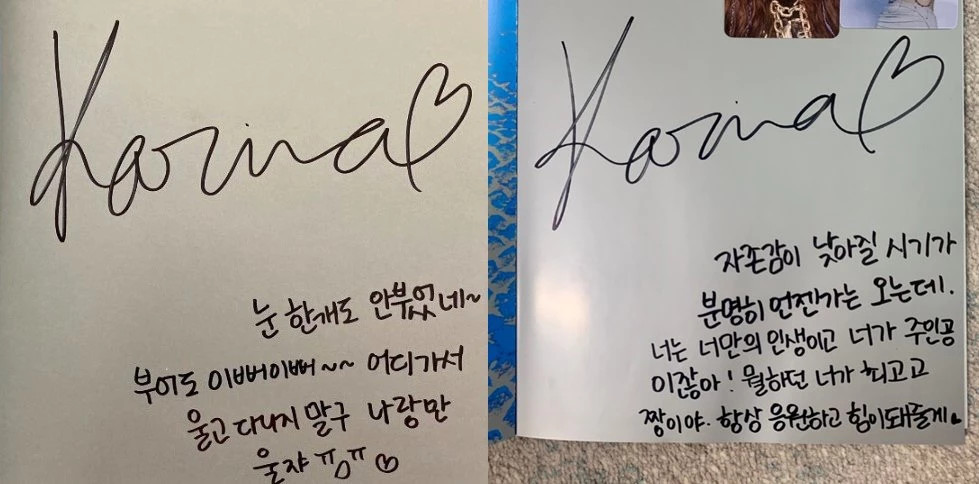 Karina♡
눈 한개도 안부었네~
부어도 이뻐이뻐~~ 어디가서
울고 다니지 말구 나랑만
울쟈 ㅠㅇㅠ ♡
Karina♡
자존감이 낮아질 시기가
분명히 언젠가는 오는데.
너는 너만의 인생이고 너가 주인공
이잖아! 뭘하던 너가 최고고
짱이야. 항상 응원하고 힘이돼줄게♥